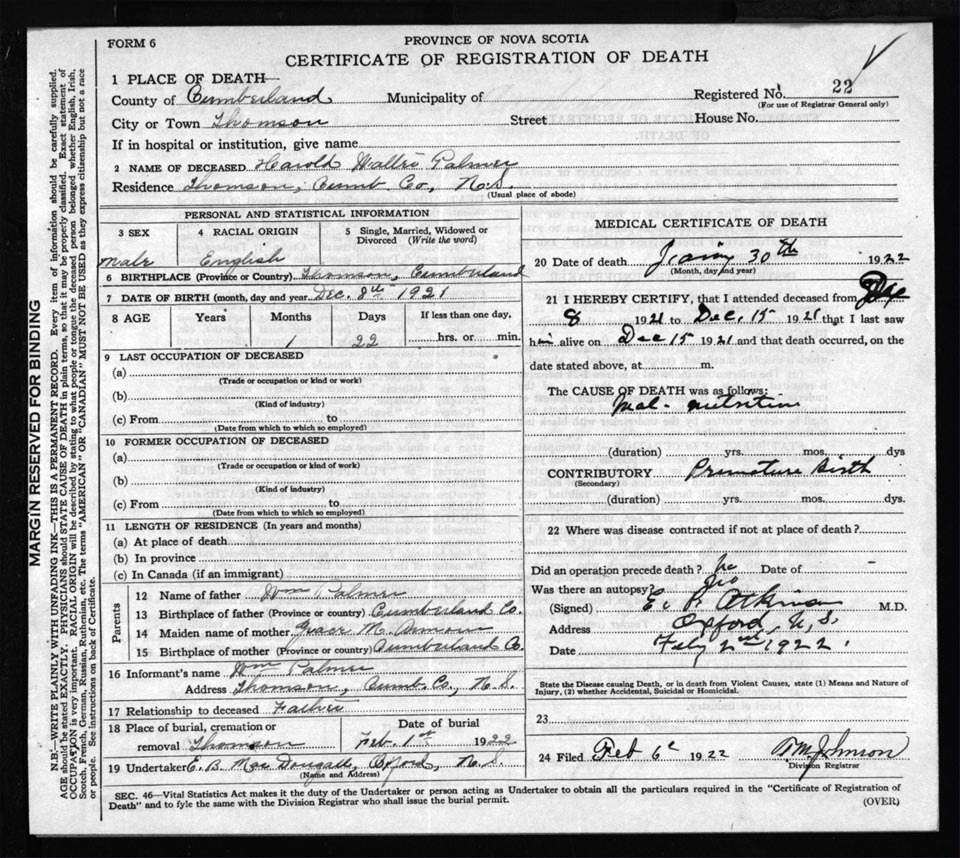 FORM 6
PROVINCE OF NOVA SCOTIA
CERTIFICATE OF REGISTRATION OF DEATH
1 PLACE OF DEATH—
County of Cumberland Municipality of Registered No. 22
(For use of Registrar General only)
City or Town Thomson Street House No.
If in hospital or institution, give name
2 NAME OF DECEASED Harold Palmer
Residence Thomson, Cumb Co., N.S.
(Usual place of abode)
PERSONAL AND STATISTICAL INFORMATION
3 SEX 4 RACIAL ORIGIN 5 Single, Married, Widowed or Divorced (Write the word)
Male English
6 BIRTHPLACE (Province or Country) Thomson, Cumberland
7 DATE OF BIRTH (month, day and year) Dec. 8th 1921
8 AGE Years Months Days If less than one day,
1 22 hrs. or min.
9 LAST OCCUPATION OF DECEASED
(a)
(Trade or occupation or kind or work)
(b)
(Kind of industry)
(c) From to
(Date from which to which so employed)
10 FORMER OCCUPATION OF DECEASED
(a)
(Trade or occupation or kind of work)
(b)
(Kind of industry)
(c) From to
(Date from which to which so employed)
11 LENGTH OF RESIDENCE (In years and months)
(a) At place of death
(b) In province
(c) In Canada (if an immigrant)
Parents
12 Name of father Wm Palmer
13 Birthplace of father (Province or country) Cumberland Co.
14 Maiden name of mother Grace M.
15 Birthplace of mother (Province or country) Cumberland Co.
16 Informant's name Wm Palmer
Address Thomson, Cumb. Co., N.S.
17 Relationship to deceased Father
18 Place of burial, cremation or Date of burial
removal Thomson Feb. 1st 1922
19 Undertaker E. B. MacDougall, Oxford, N.S.
(Name and Address)
MEDICAL CERTIFICATE OF DEATH
20 Date of death 30th 1922
(Month, day and year)
21 I HEREBY CERTIFY, that I attended deceased from Dec
8 1921 to Dec. 15 1921 that I last saw
him alive on Dec 15 1921 and that death occurred, on the
date stated above, at m.
The CAUSE OF DEATH was as follows:
Mal-nutrition
(duration) yrs. mos. dys
CONTRIBUTORY Premature Birth
(Secondary)
(duration) yrs. mos. dys.
22 Where was disease contracted if not at place of death?
Did an operation precede death? No Date of
Was there an autopsy? No
(Signed) E. Atkinson M.D.
Address Oxford, N.S.
Date Feby 2nd 1922.
State the Disease Causing Death, or in death from Violent Causes, state (1) Means and Nature of
Injury, (2) whether Accidental, Suicidal or Homicidal.
23
24 Filed Feb 6 1922 Johnson
Division Registrar
SEC. 46—Vital Statistics Act makes it the duty of the Undertaker or person acting as Undertaker to obtain all the particulars required in the "Certificate of Registration of
Death" and to fyle the same with the Division Registrar who shall issue the burial permit.
(OVER)
MARGIN RESERVED FOR BINDING
N.B.—WRITE PLAINLY WITH UNFADING INK—THIS IS A PERMANENT RECORD. Every item of information should be carefully supplied.
AGE should be stated EXACTLY. PHYSICIANS should STATE CAUSE OF DEATH in plain terms, so that it may be properly classified. Exact statement of
OCCUPATION is very important. RACIAL ORIGIN will be described by stating to what people or tongue the deceased person belonged whether English, Irish,
Scotch, French, German, Russian, Ruthenian, etc. The terms "AMERICAN" OR "CANADIAN" MUST NOT BE USED as they express citizenship but not a race
or people. See instructions on back of Certificate.